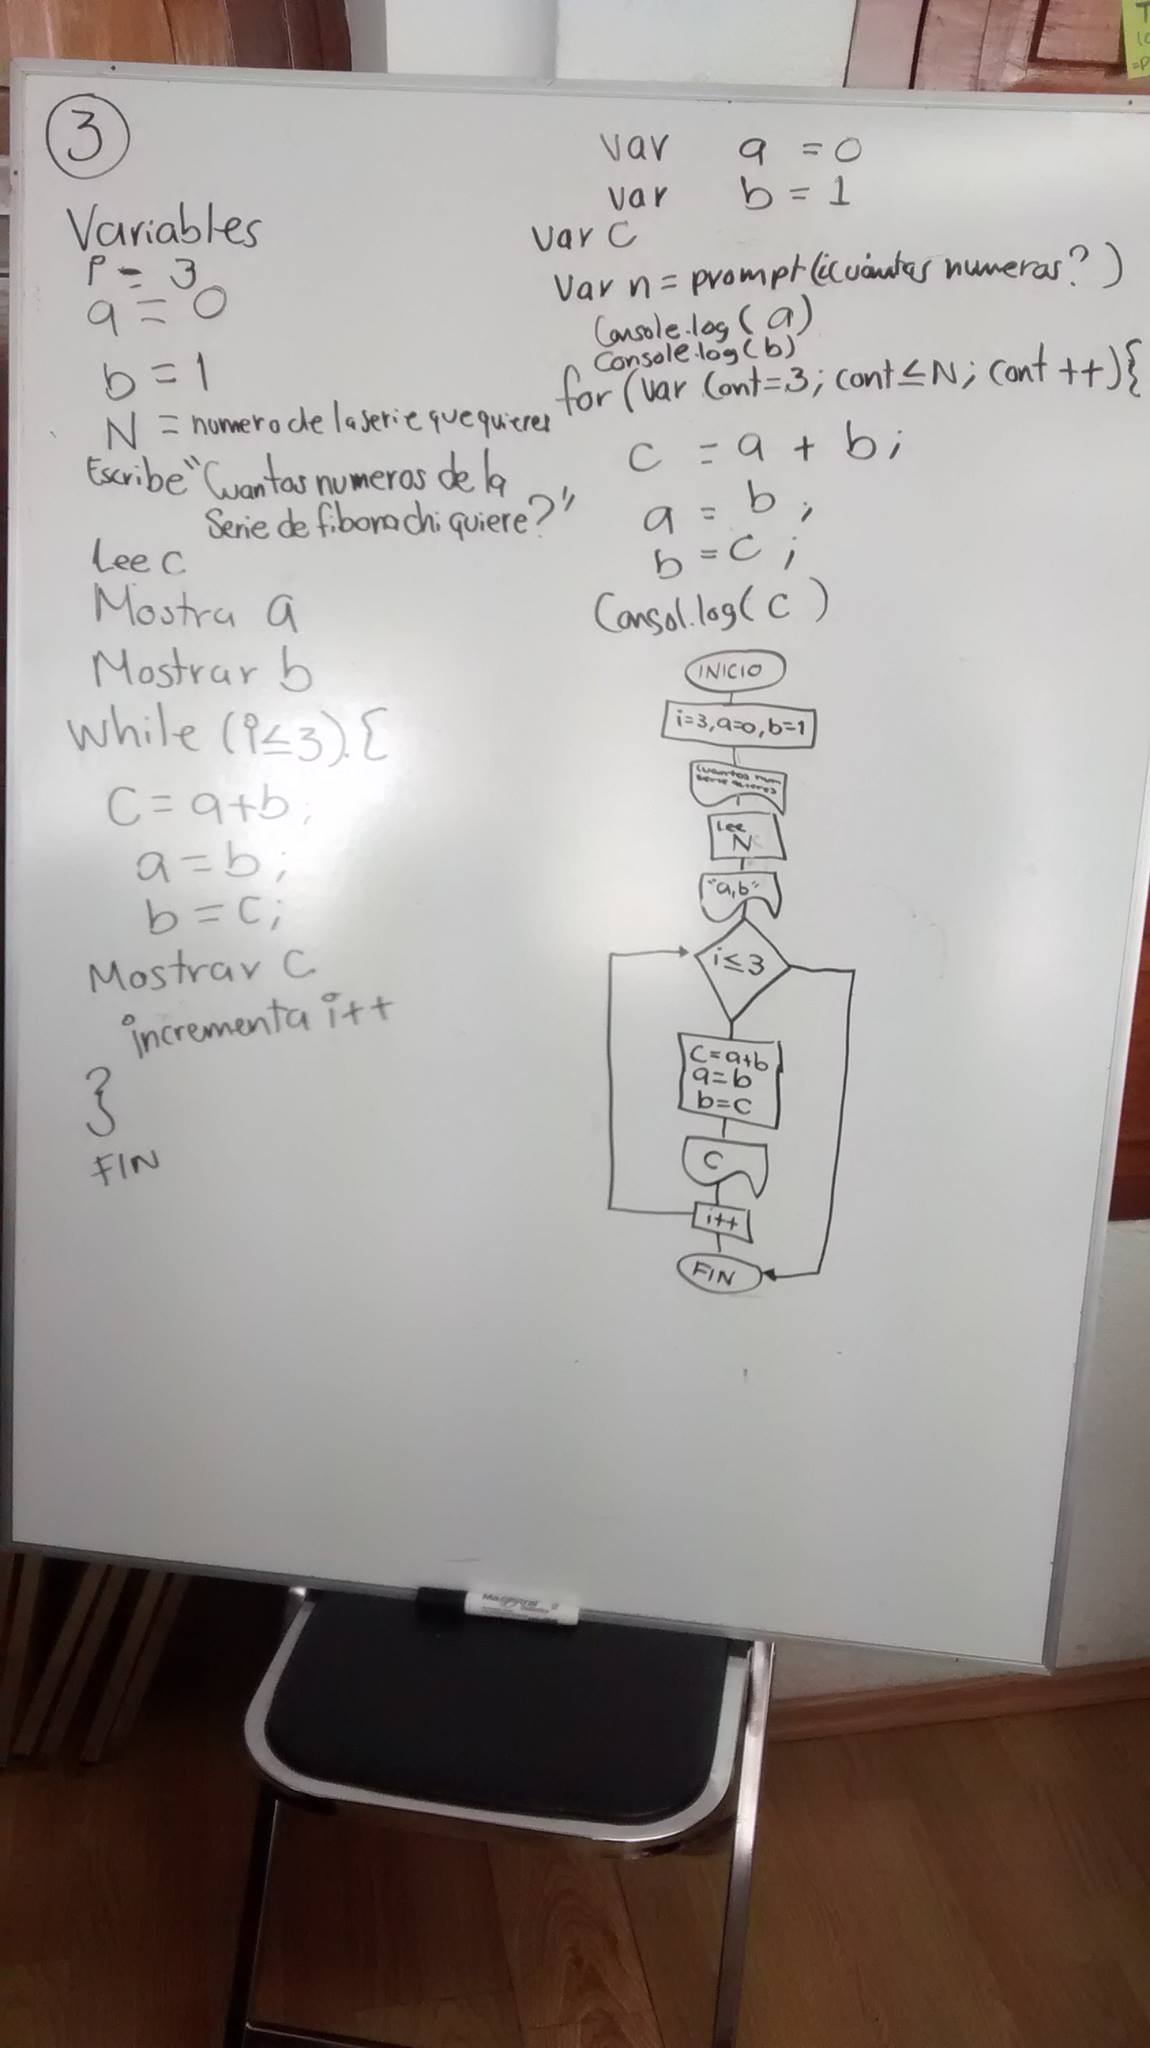 3
Variables
i = 3
a = 0
b = 1
N = numero de la serie que quieres
Escribe "Cuantos numeros de la
Serie de fibonachi quiere?"
Lee C
Mostra a
Mostrar b
While (i≤3).{
C = a+b;
a = b;
b = C;
Mostrar C
incrementa i++
}
FIN
var a = 0
var b = 1
var C
Var n = prompt(¿cuántas numeros?)
Console.log(a)
console.log(b)
for (var Cont=3; cont≤N; Cont ++){
C = a + b;
a = b;
b = C;
Consol.log(C)
INICIO
i=3,a=0,b=1
Cuantos num
serie quieres
Lee
N
"a,b"
i≤3
C=a+b
a=b
b=C
C
i++
FIN